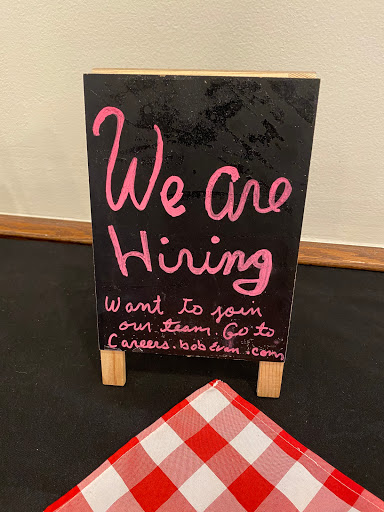 We are
Hiring
Want to join
our team. Go to
Careers.bobEvan.com